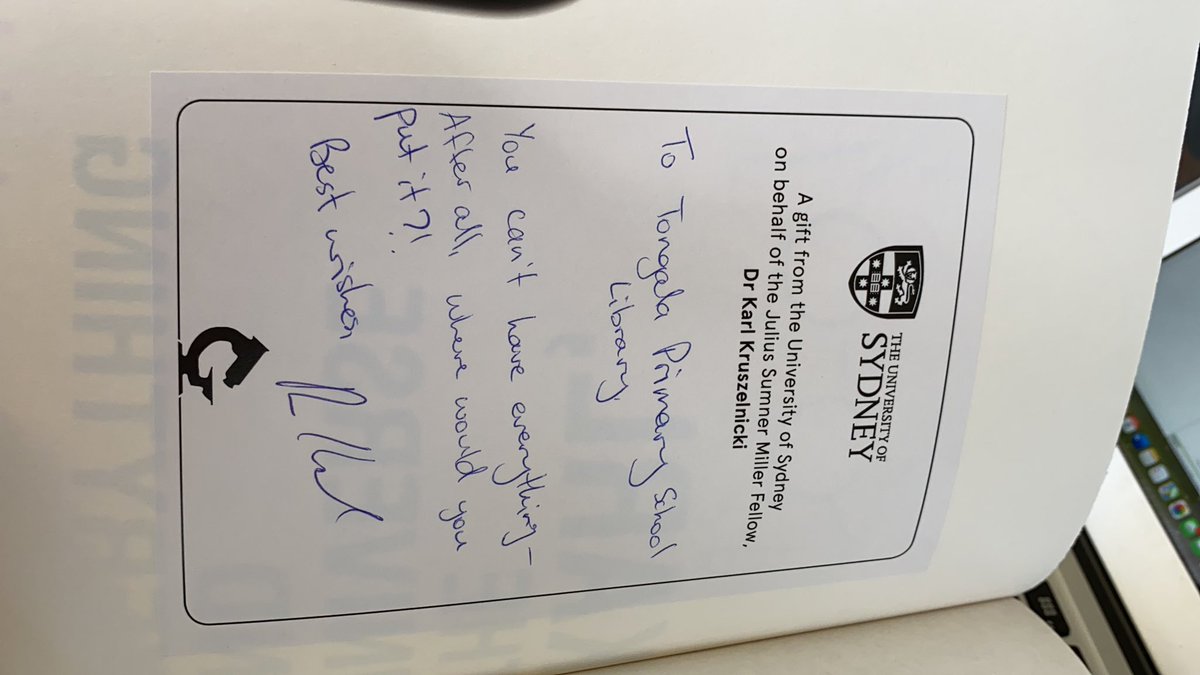 THE UNIVERSITY OF
SYDNEY
A gift from the University of Sydney
on behalf of the Julius Sumner Miller Fellow,
Dr Karl Kruszelnicki
To Tongala Primary School
Library
You can't have everything –
After all, where would you
put it?!
Best wishes